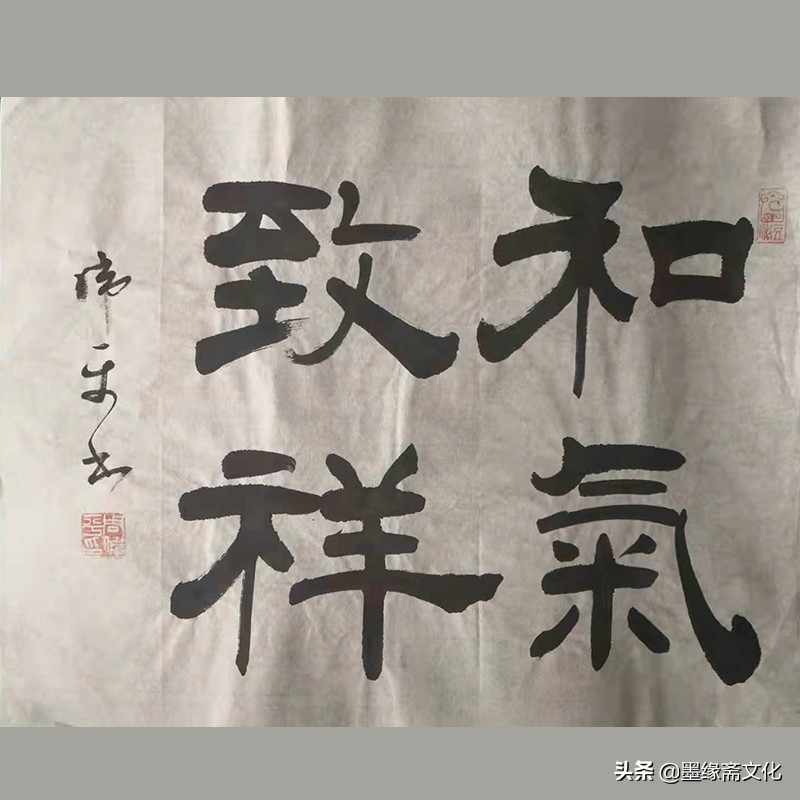 和氣
致祥
书
头条 @墨缘斋文化